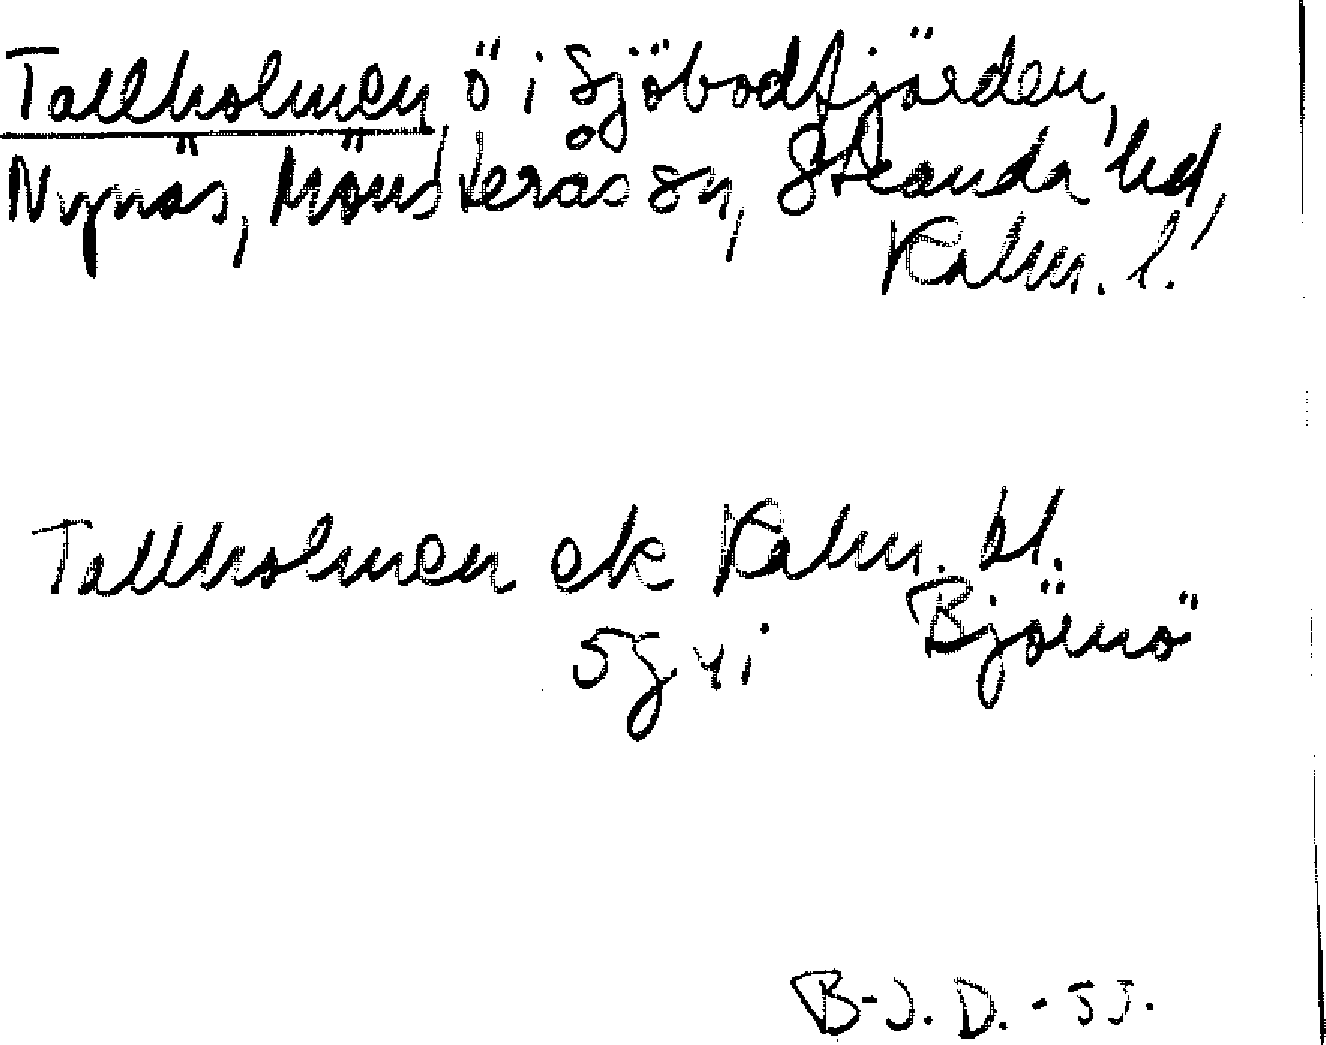 Tallholmen ö i Sjöbodfjärden,
Nynäs, Mönsterås sn, Stranda hd,
Kalm. l.
Tallholmen ek Kalm. bl.
5g yi Björnö
B-J. D. - 55.